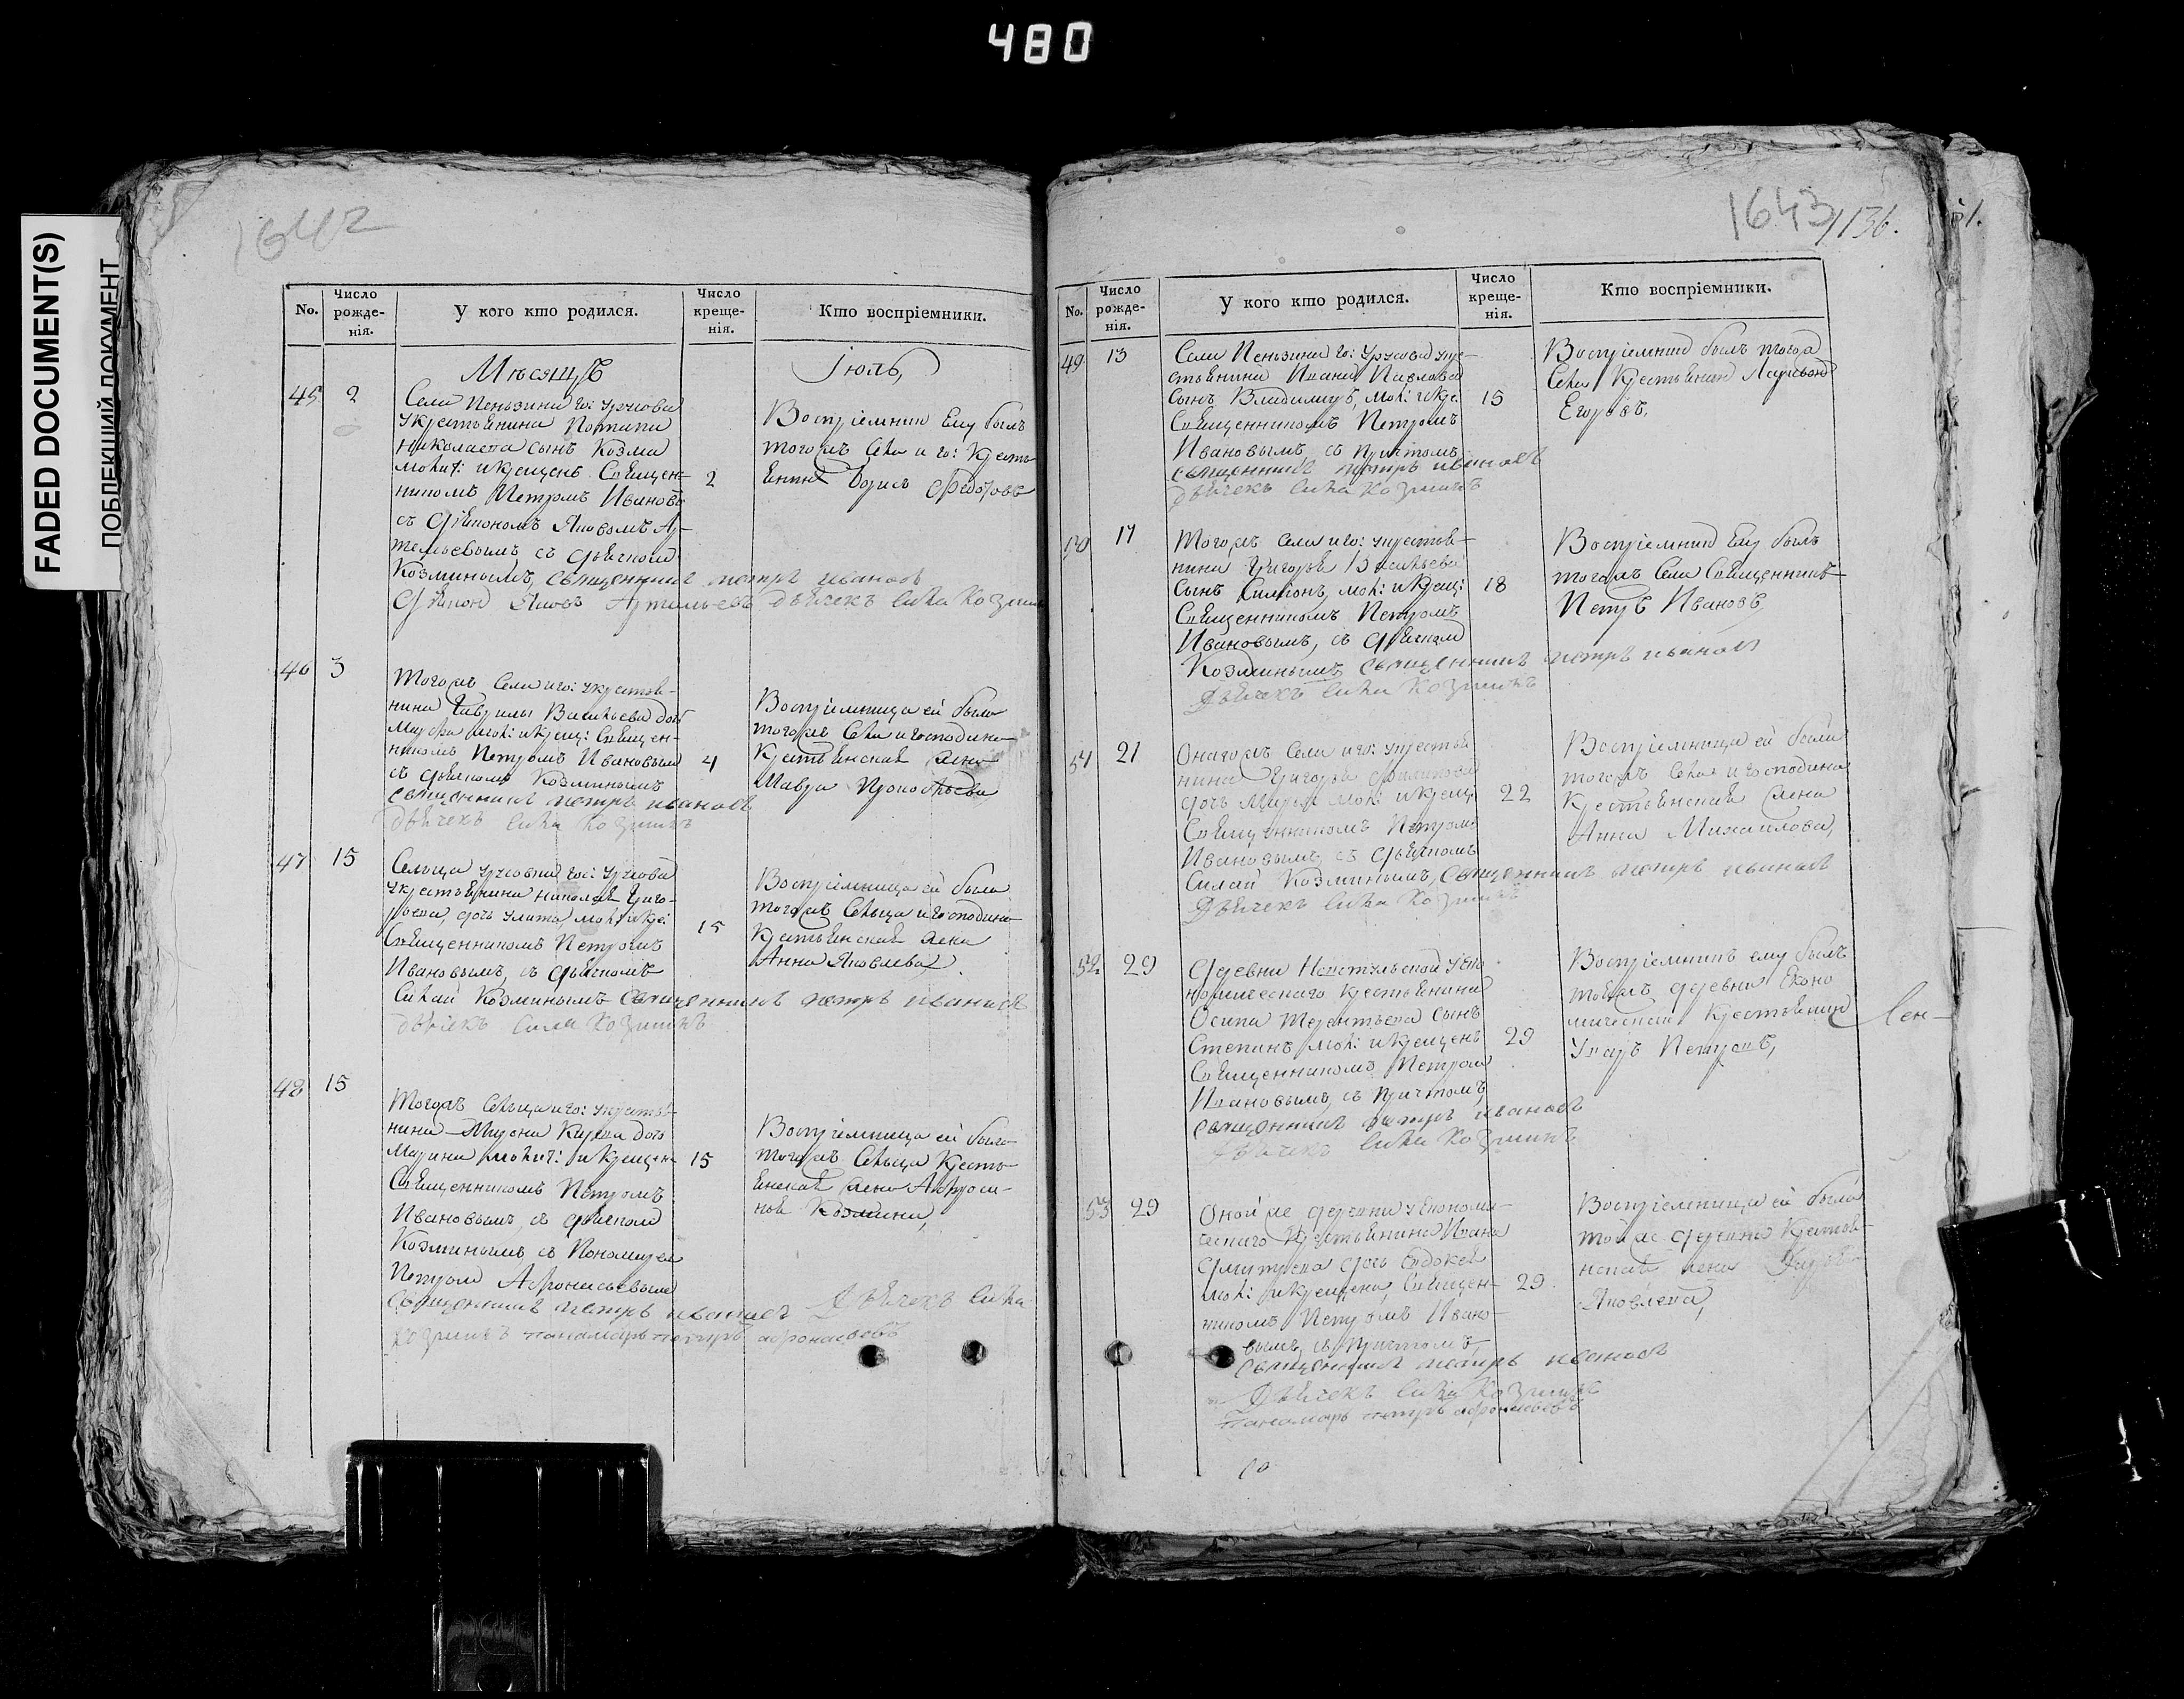 480
FADED DOCUMENT(S)
ПОБЛЕКШИЙ ДОКУМЕНТ
1642
No. Число рожде-нія. У кого кто родился. Число креще-нія. Кто воспріемники.
Мѣсяцъ Іюль,
45 2
Села Пеньзина го: Урусова
у крестьянина Потапа
Николаева сынъ Козма
мол: и крещенъ Священ-
никомъ Петромъ Ивановы
съ Діакономъ Яковомъ Ар-
темьевымъ съ дьячкомъ
Козминымъ, священникъ петръ ивановъ
Діаконъ Яковъ Артемьевъ дьячекъ сила Козмин
2
Воспріемник Ему былъ
тогожъ Села и го: Кресть
янинъ Борисъ Федотовъ
46 3
Тогожъ Села и го: у крестья-
нина Гаврилы Васильева дочь
Марфа мол: и крещ: Священ-
никомъ Петромъ Ивановым
съ дьячкомъ Козминымъ
священникъ петръ ивановъ
дьячекъ сила Козминъ
4
Воспріемница ей была
тогожъ Села и господина
Крестьянская жена
Мавра Прокофьева
47 15
Сельца Урусовки го: Урусова
у крестьянина Николая Григо-
рьева, дочь Улита мол: и кре:
Священникомъ Петромъ
Ивановымъ, съ дьячкомъ
Силай Козминымъ священникъ петръ ивановъ
дьячекъ сила Козминъ
15
Воспріемница ей была
тогожъ Сельца и господина
Крестьянская жена
Анна Яковлева
48 15
Тогожъ Сельца и го: у крестья-
нина Кирева дочь
Марина молит: и крещен
Священникомъ Петромъ
Ивановымъ, съ дьячком
Козминымъ, съ Пономарем
Петром Афонасьевым
священникъ петръ ивановъ Дьячекъ сила
Козминъ пономарь петръ афонасьевъ
15
Воспріемница ей была
тогожъ Сельца Кресть-
янская жена Афроси-
нья Козмина,
1643/136.
No. Число рожде-нія. У кого кто родился. Число креще-нія. Кто воспріемники.
49 13
Села Пеньзина го: Урусова у кре-
стьянина Ивана Павлова
сынъ Владимиръ, мол: и кре:
Священникомъ Петромъ
Ивановымъ, съ причтомъ
священникъ петръ ивановъ
дьячекъ сила Козминъ
15
Воспріемник былъ тогож
Села Крестьянин Ларивон
Егоровъ,
50 17
Тогожъ Села и го: у крестья-
нина Григорья Васильева
сынъ Симионъ, мол: и крещ:
Священникомъ Петромъ
Ивановымъ, съ дьячком
Козминымъ священникъ петръ ивановъ
Дьячекъ сила Козминъ
18
Воспріемник Ему былъ
тогожъ Села Священникъ
Петръ Ивановъ,
51 21
Онагожъ Села и го: у крестья
нина Григорья
дочь Марья мол: и крещ:
Священникомъ Петромъ
Ивановымъ, съ дьячкомъ
Силай Козминымъ, священникъ петръ ивановъ
Дьячекъ сила Козминъ
22
Воспріемница ей была
тогожъ Села и господина
Крестьянская жена
Анна Михаилова,
52 29
Деревни у эко
номическаго крестьянина
Осипа Терентьева сынъ
Степанъ мол: и крещенъ
Священникомъ Петром
Ивановымъ, съ причтомъ,
священникъ петръ ивановъ
Дьячекъ сила Козминъ
29
Воспріемникъ ему былъ
тойжъ деревни Эконо
мической Крестьянин
Уваръ Петровъ,
Сен-
53 29
Оной же деревни у економи-
ческаго Крестьянина Ивана
Дмитрева дочь Евдокея
мол: и крещена, Священ-
никомъ Петромъ Ивано-
вымъ, съ причтомъ,
священникъ петръ ивановъ
Дьячекъ сила Козминъ
пономарь петръ афонасьевъ
29
Воспріемница ей была
той же деревни Крестья-
нская жена
Яковлева,